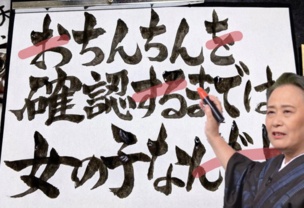 おちんちんを
確認するまでは
女の子なんだ